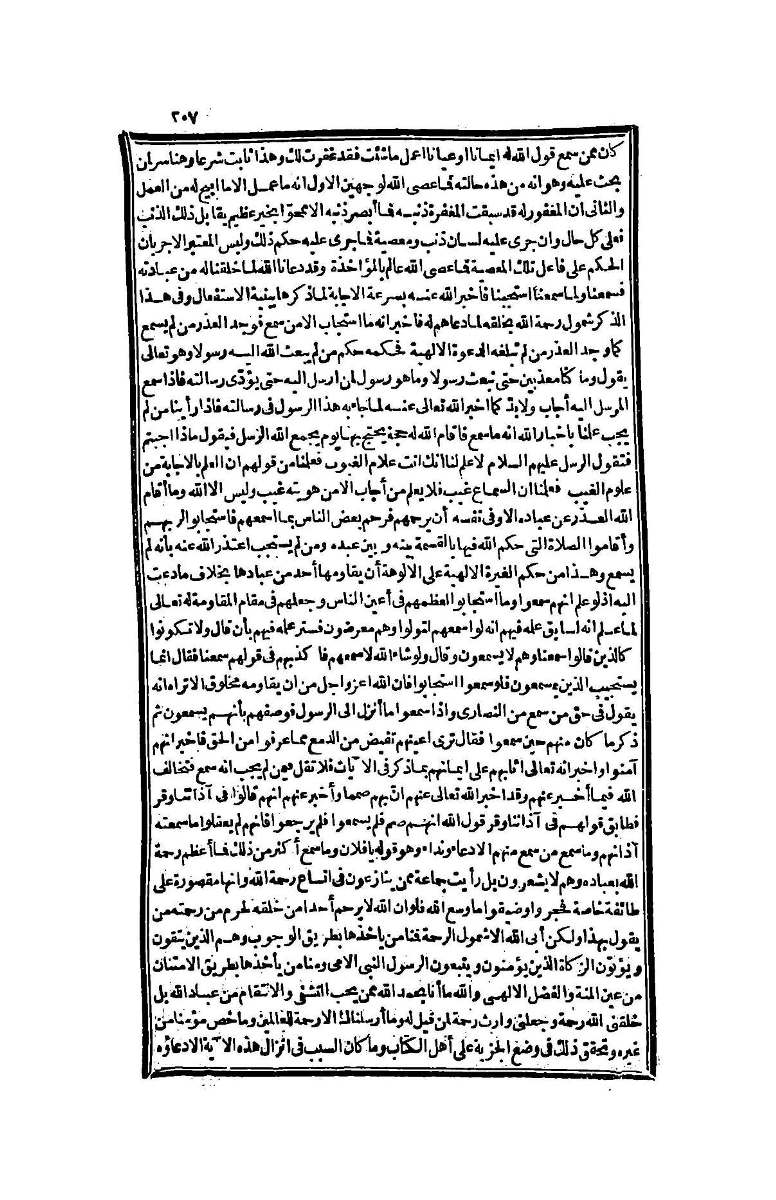 ٢٠٧
كان ممن سمع قول الله له ايمانا أو عيانا اعمل ما شئت فقد غفرت لك وهذا ثابت شرعا وهنا سر ان
بحث عليه وهو انه من هذه حالته فما عصى الله لوجهين الاول انه ما عمل الا ما ابيح له من العمل
والثانى ان المغفور له قد سبقت المغفرة ذنبه فما أبصر ذنبه الا ممحوّا بخير عظيم يقابل ذلك الذنب
فعلى كل حال وان جرى عليه لسان ذنب ومعصية فما جرى عليه حكم ذلك وليس المعتبر الا جريان
الحكم على فاعل تلك المعصية فما عصى الله عالم بالمؤاخذة وقد دعانا الله لما خلقنا له من عبادته
فسمعنا ولما سمعنا استجبنا فأخبر الله عنه بسرعة الاجابة لما ذكرها ببنية الاستفعال وفى هذا
الذكر شمول رحمة الله بخلقه لما دعاهم له فأخبر انه ما استجاب الا من سمع فوجد العذر من لم يسمع
كما وجد العذر من لم تبلغه الدعوة الالهية فحكمه حكم من لم يبعث الله اليه رسولا وهو تعالى
يقول وما كنا معذبين حتى نبعث رسولا وما هو رسول لمن ارسل اليه حتى يؤدّى رسالته فاذا سمع
المرسل اليه أجاب ولا بدّ كما اخبر الله تعالى عنه لما جاء به هذا الرسول فى رسالته فاذا رأينا من لم
يجب علنا باخبار الله انه ما سمع فأقام الله له حجة يحتج بها يوم يجمع الله الرسل فيقول ماذا اجبتم
فتقول الرسل عليهم السلام لا علم لنا انك انت علام الغيوب فعلمنا من قولهم ان العلم بالاجابة من
علوم الغيب فعلمنا ان السماع غيب فلا يعلم من أجاب الا من هويته غيب وليس الا الله وما أقام
الله العذر عن عباده الا وفى نفسه أن يرحمهم فرحم بعض الناس بما اسمعهم فاستجابوا لربهم
وأقاموا الصلاة التى حكم الله فيها بالقسمة بينه وبين عبده ومن لم يستجب اعتذر الله عنه بأنه لم
يسمع وهذا من حكم الغيرة الالهية على الالوهة أن يقاومها أحد من عبادها بخلاف ما دعت
اليه اذ لو علم انهم سمعوا وما استجابوا لعظمهم فى أعين الناس وجعلهم فى مقام المقاومة له تعالى
لما علم انه سابق علمه فيهم انه لو اسمعهم لتولوا وهم معرضون فستر علمه فيهم بأن قال ولا تكونوا
كالذين قالوا سمعنا وهم لا يسمعون وقال ولو شاء الله لاسمعهم فأكذبهم فى قولهم سمعنا فقال انما
يستجيب الذين يسمعون فلو سمعوا استجابوا فان الله اعز واجل من ان يقاومه مخلوق الا تراه انه
يقول فى حق من سمع من النصارى واذا سمعوا ما أنزل الى الرسول فوصفهم بأنهم يسمعون ثم
ذكر ما كان منهم حين سمعوا فقال ترى اعينهم تفيض من الدمع مما عرفوا من الحق فأخبر انهم
آمنوا واخبر انه تعالى اثابهم على ايمانهم بما ذكر فى الآيات فلا تقل فيمن لم يجب انه سمع فتخالف
الله فيما أخبر عنهم وقد اخبر الله تعالى عنهم ان بهم صمما وأخبر عنهم انهم قالوا فى آذاننا وقر
فطابق قولهم فى آذاننا وقر قول الله انهم صم فلم يسمعوا فلم يرجعوا فانهم لم يعقلوا ما سمعته
آذانهم وما سمع من سمع منهم الا دعاء ونداء وهو قوله يا فلان وما سمع أكثر من ذلك فما أعظم رحمة
الله بعباده وهم لا يشعرون بل رأيت جماعة ممن ينازعون فى اتساع رحمة الله وانها مقصورة على
طائفة خاصة فحجروا وضيقوا ما وسع الله فلو ان الله لا يرحم أحدا من خلقه لحرم من رحمته من
يقول بهذا ولكن أبى الله الا شمول الرحمة فمنا من يأخذها بطريق الوجوب وهم الذين يتقون
ويؤتون الزكاة الذين يؤمنون ويتبعون الرسول النبى الامى ومنا من يأخذها بطريق الامتنان
من عين المنة والفضل الالهى والله ما أنا بحمد الله ممن يحب التشفى والانتقام من عباد الله بل
خلقنى الله رحمة وجعلنى وارث رحمة لمن قيل له وما أرسلناك الا رحمة للعالمين وما خص مؤمنا من
غيره وتحقق ذلك فى وضع الجزية على أهل الكتاب وما كان السبب فى انزال هذه الآية الا دعاؤه